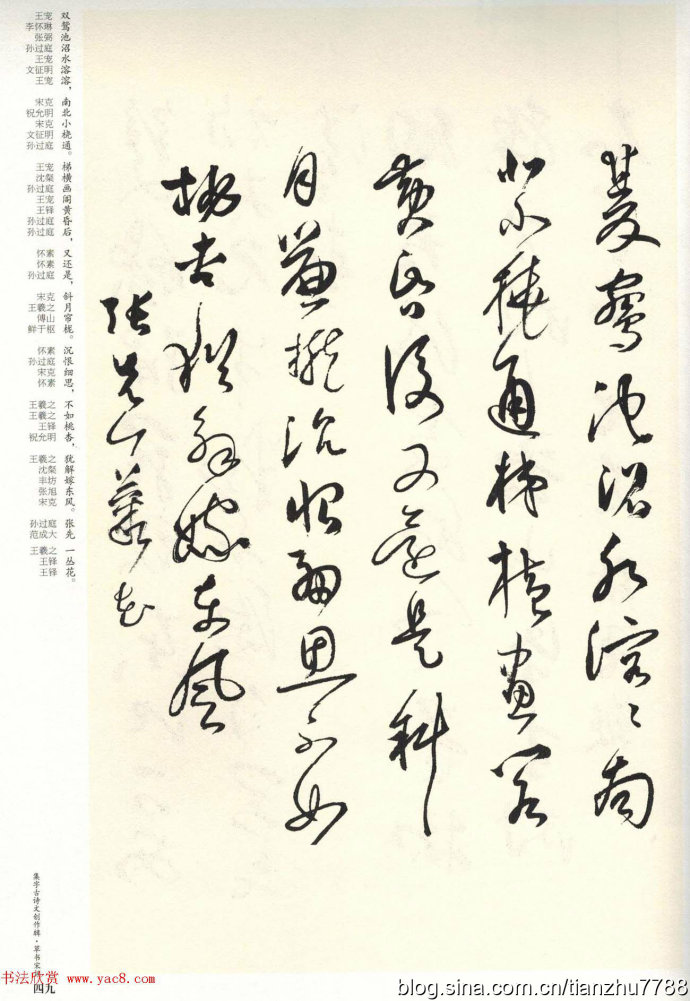 雙鴛池沼水溶〻南
北小橈通梯橫畫閣
黃昏後又還是斜
月簾櫳沉恨細思不如
桃杏猶解嫁東風
張先一叢花
王宠 双
李怀琳 鸳
张弼 池
孙过庭 沼
王宠 水
文征明 溶
王宠 溶，
宋克 南
祝允明 北
宋克 小
文征明 桡
孙过庭 通。
王宠 梯
沈粲 横
孙过庭 画
王宠 阁
王铎 黄
孙过庭 昏
孙过庭 后，
怀素 又
怀素 还
孙过庭 是，
宋克 斜
王羲之 月
傅山 帘
鲜于枢 栊。
怀素 沉
孙过庭 恨
宋克 细
怀素 思，
王羲之 不
王羲之 如
王铎 桃
祝允明 杏，
王羲之 犹
沈粲 解
丰坊 嫁
张旭 东
宋克 风。
孙过庭 张
范成大 先
王羲之 一
王铎 丛
王铎 花。
集字古诗文创作辑·草书宋词
四九
书法欣赏 www.yac8.com
blog.sina.com.cn/tianzhu7788